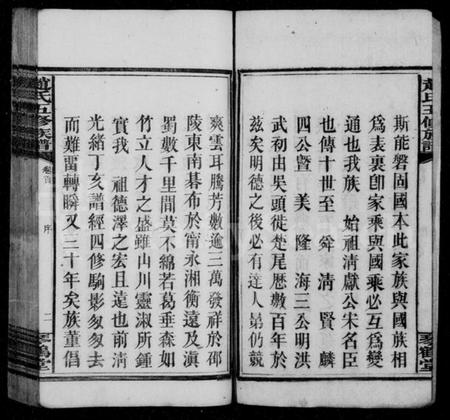 趙氏五修族譜
斯能磐固國本此家族與國族相
為表裏卽家乘與國乘必互為變
通也我族 始祖清獻公宋名臣
也傳十世至 舜 清 賢 麟
四公暨 美 隆 海三公明洪
武初由吳頭徙楚尾歷數百年於
茲矣明德之後必有達人苐仍競
琴鶴堂
趙氏五修族譜
卷首
序
二
爽雲耳騰芳數逾三萬發祥於邵
陵東南碁布於甯永湘衡遠及滇
蜀數千里間莫不綿若葛垂森如
竹立人才之盛雖山川靈淑所鍾
實我 祖德澤之宏且遠也前清
光緒丁亥譜經四修駒影匆匆去
而難留轉瞬又三十年矣族董倡
琴鶴堂